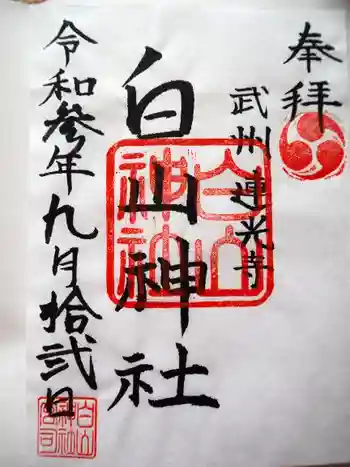 奉拝
武州連光寺
白山神社
白山神社
令和参年九月拾弐日
白山神社宮司